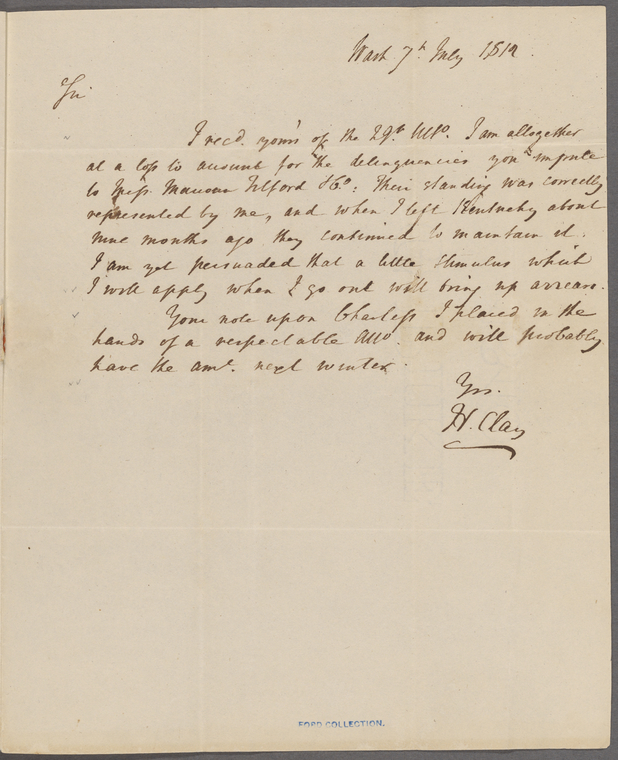 Wash. 7th July 1812.
Sir
I recd. yours of the 29th. Ulto. I am altogether
at a loss to account for the delinquencies you impute
to Mess. Maccoun Tilford & Co: Their standing was correctly
represented by me, and when I left Kentucky about
nine months ago they continued to maintain it.
I am yet persuaded that a little stimulus which
I will apply when I go out will bring up arrears.
Your note upon Charless I placed in the
hands of a respectable Atto. and will probably
have the amt. next winter.
Yrs.
H. Clay
FORD COLLECTION.